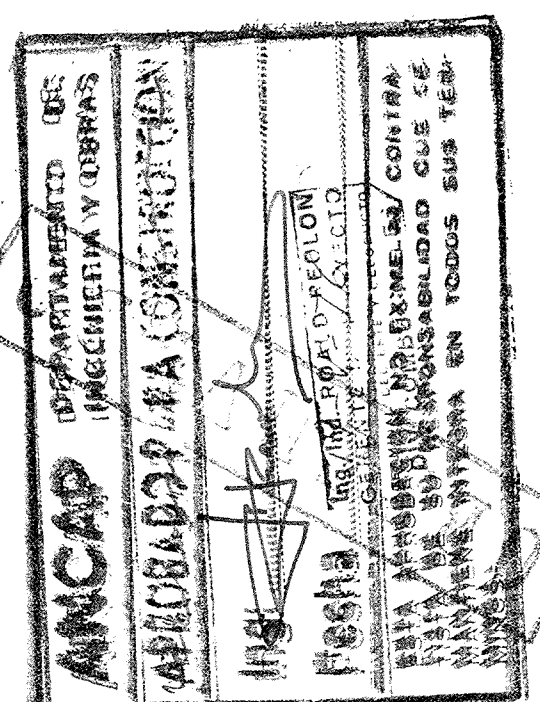 ANCAP DEPARTAMENTO DE
INGENIERIA Y OBRAS
APROBADO PARA CONSTRUCCION
Ing.
Ing./Ind. ROALD REOLON
GERENTE PROYECTO
Fecha
ESTA APROBACION NO EXIME AL CONTRA-
TISTA DE SU RESPONSABILIDAD QUE SE
MANTIENE INTEGRA EN TODOS SUS TER-
MINOS